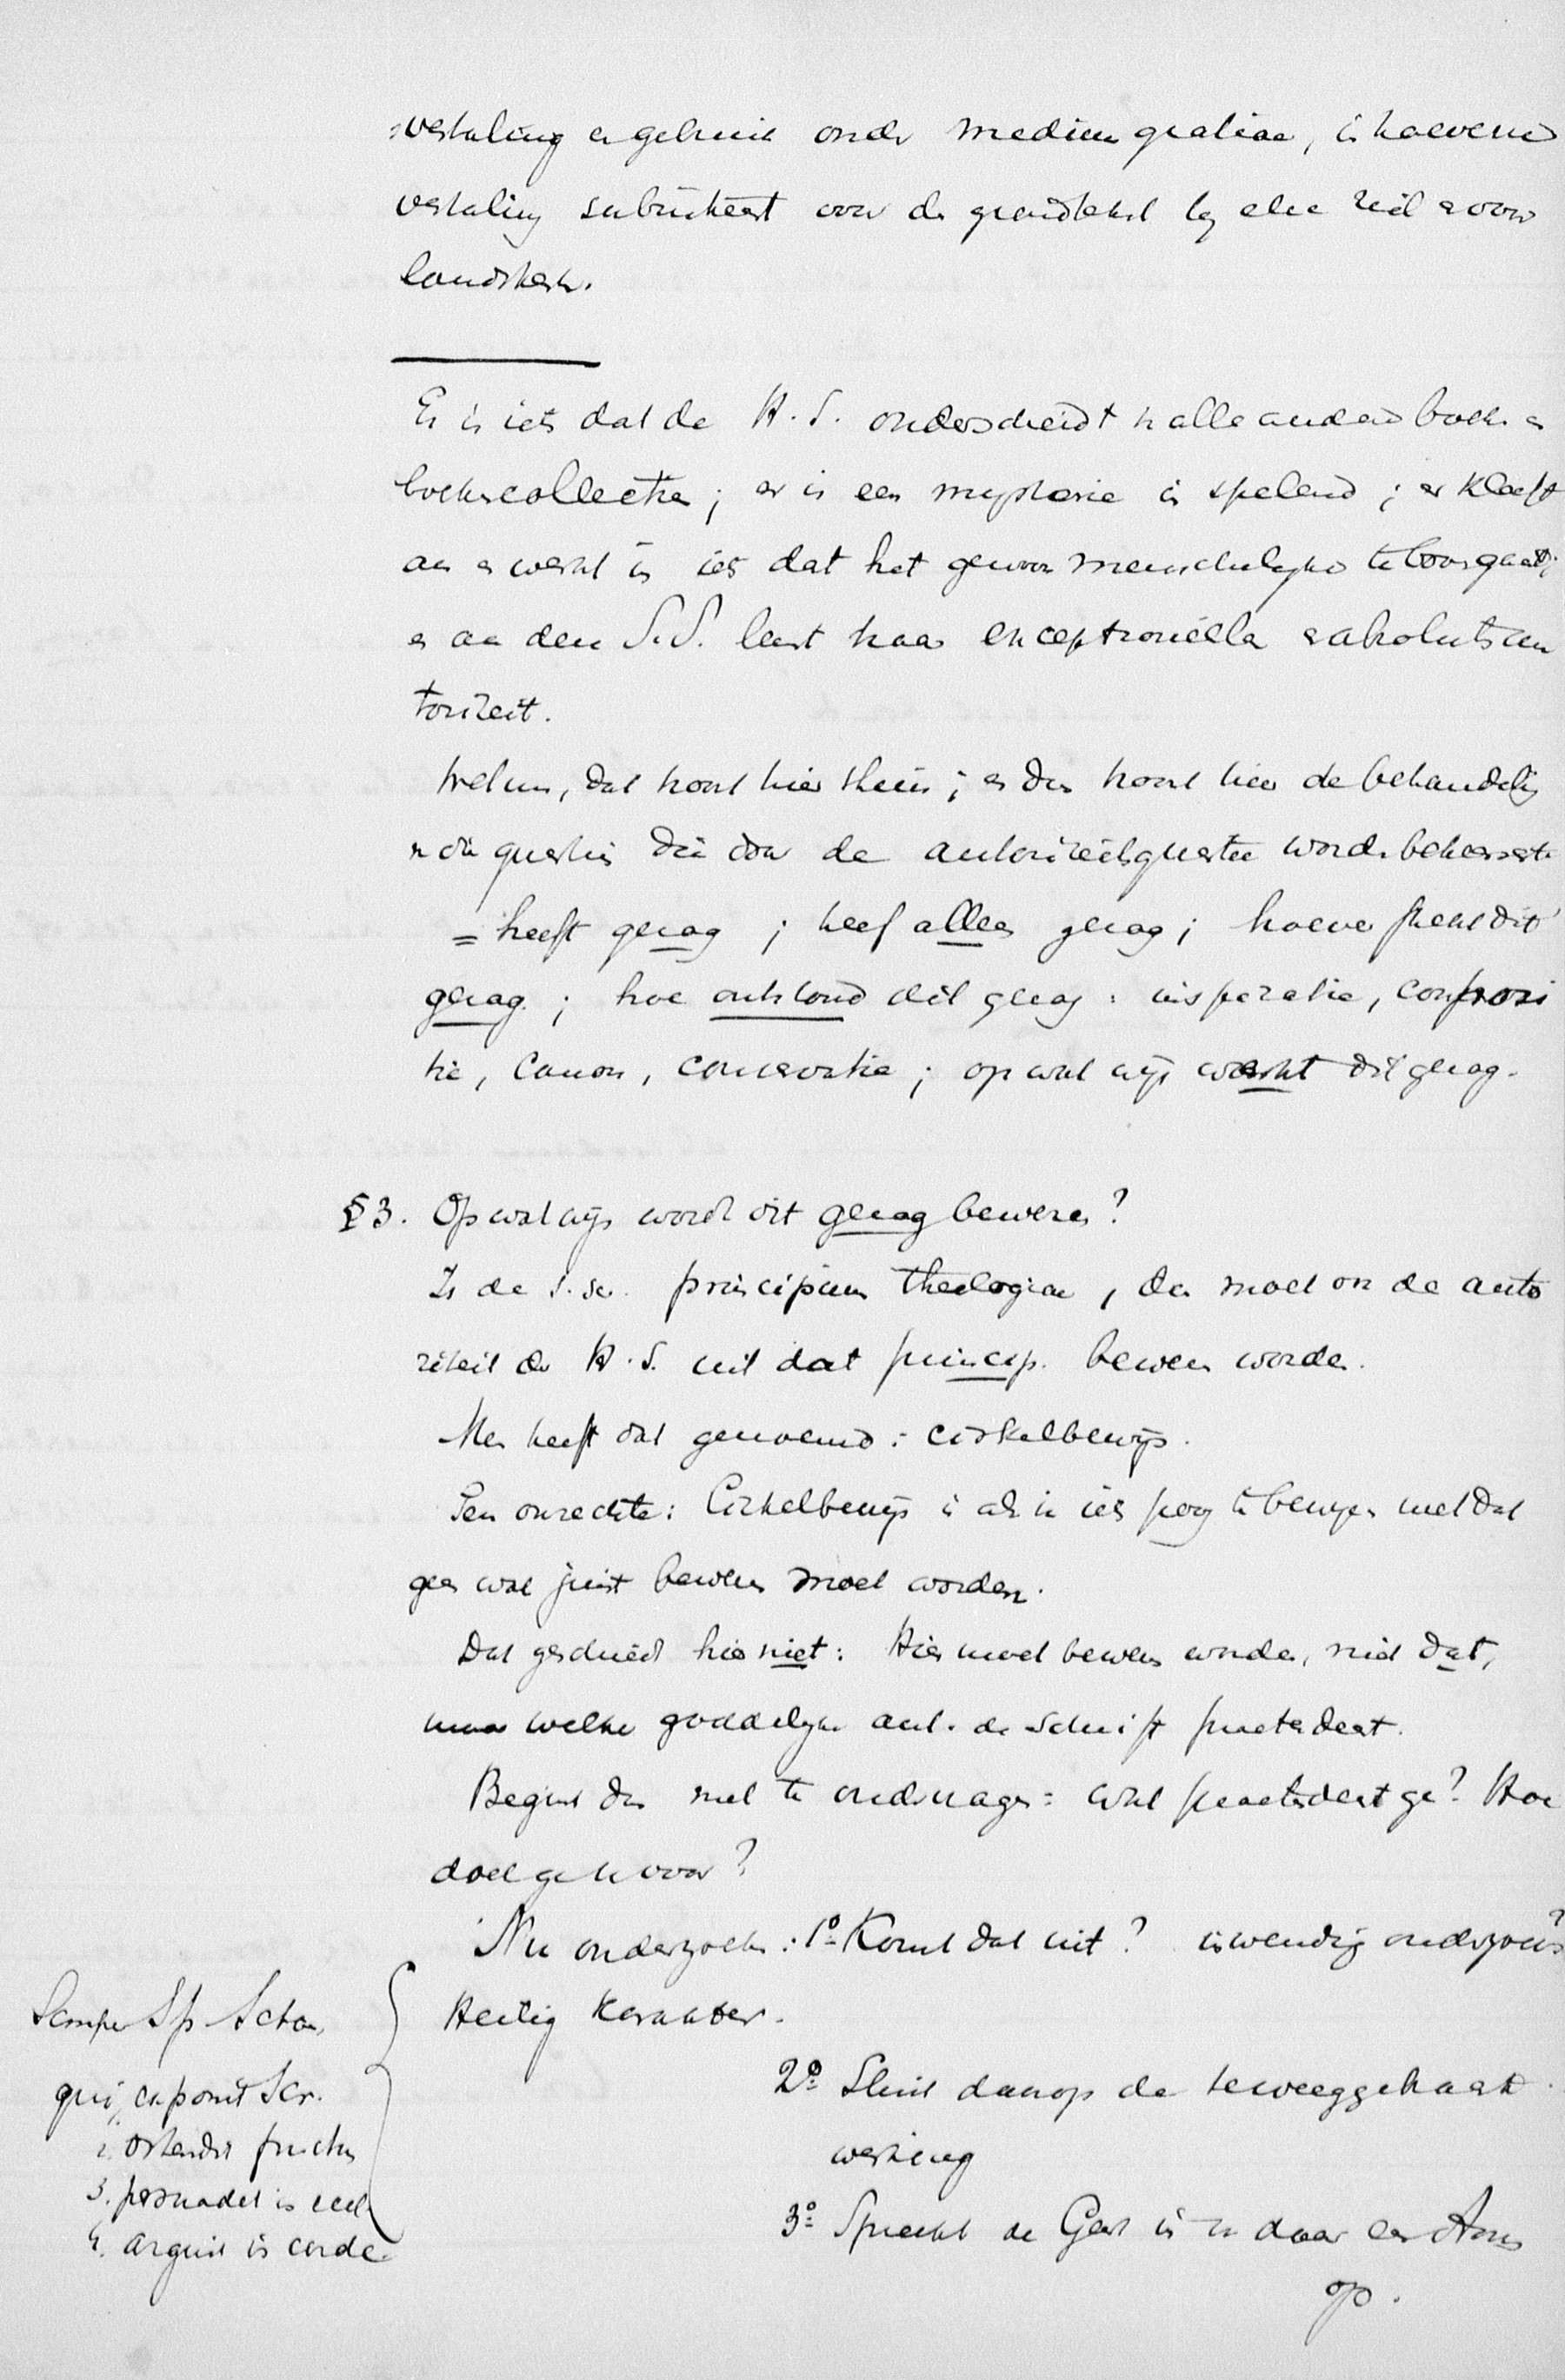 vertaling en gebruik onder medium gratiae, in hoeverre
vertaling subintreert voor de grondtekst by elke ziel en voor
landskerk.
Er is iets dat de H. S. onderscheidt v alle andere boeken en
boekencollectie; er is een mysterie in spelend; er kleeft
aan en werkt in iets dat het gewoon menschelyke te boven gaat;
en aan den S. S. leent haar exceptioneele en absolute au
toriteit.
Welnu, dat hoort hier thuis; en dus hoort hier de behandeling
v die questies die door de autoriteitsquestie worden beheerscht
= heeft gezag ; heeft alleen gezag; hoever strekt dit
gezag ; hoe ontstond dit gezag : inspiratie, composi
tie, Canon, conservatie; op wat wijs werkt dit gezag.
§ 3. Op wat wijs wordt dit gezag bewezen?
Is de S. Scr. principium theologiae, dan moet ook de auto
riteit der H. S. uit dat princip. bewezen worden.
Men heeft dat genoemd: cirkelbewijs.
Ten onrechte: Cirkelbewijs is als ik iets poog te bewyzen met dat
gene wat juist bewezen moet worden.
Dat geschiedt hier niet: Hier moet bewezen worden, niet dat,
maar welke goddelyke aut. de Schrift praetendeert.
Begint dus met te ondervragen: Wat praetendeert ge? Hoe
doet ge u voor?
Nu onderzoeken: 1º Komt dat uit? inwendig onderzoek?
Heilig karakter.
2º Sluit daarop de teweeggebrachte
werking
3º Spreekt de Geest in u daar een Amen
op.
Semper Sp. Sctus,
qui, exponit Scr.
2. Ostendit fructus
3. persuadet in eccl
4. arguit in corde